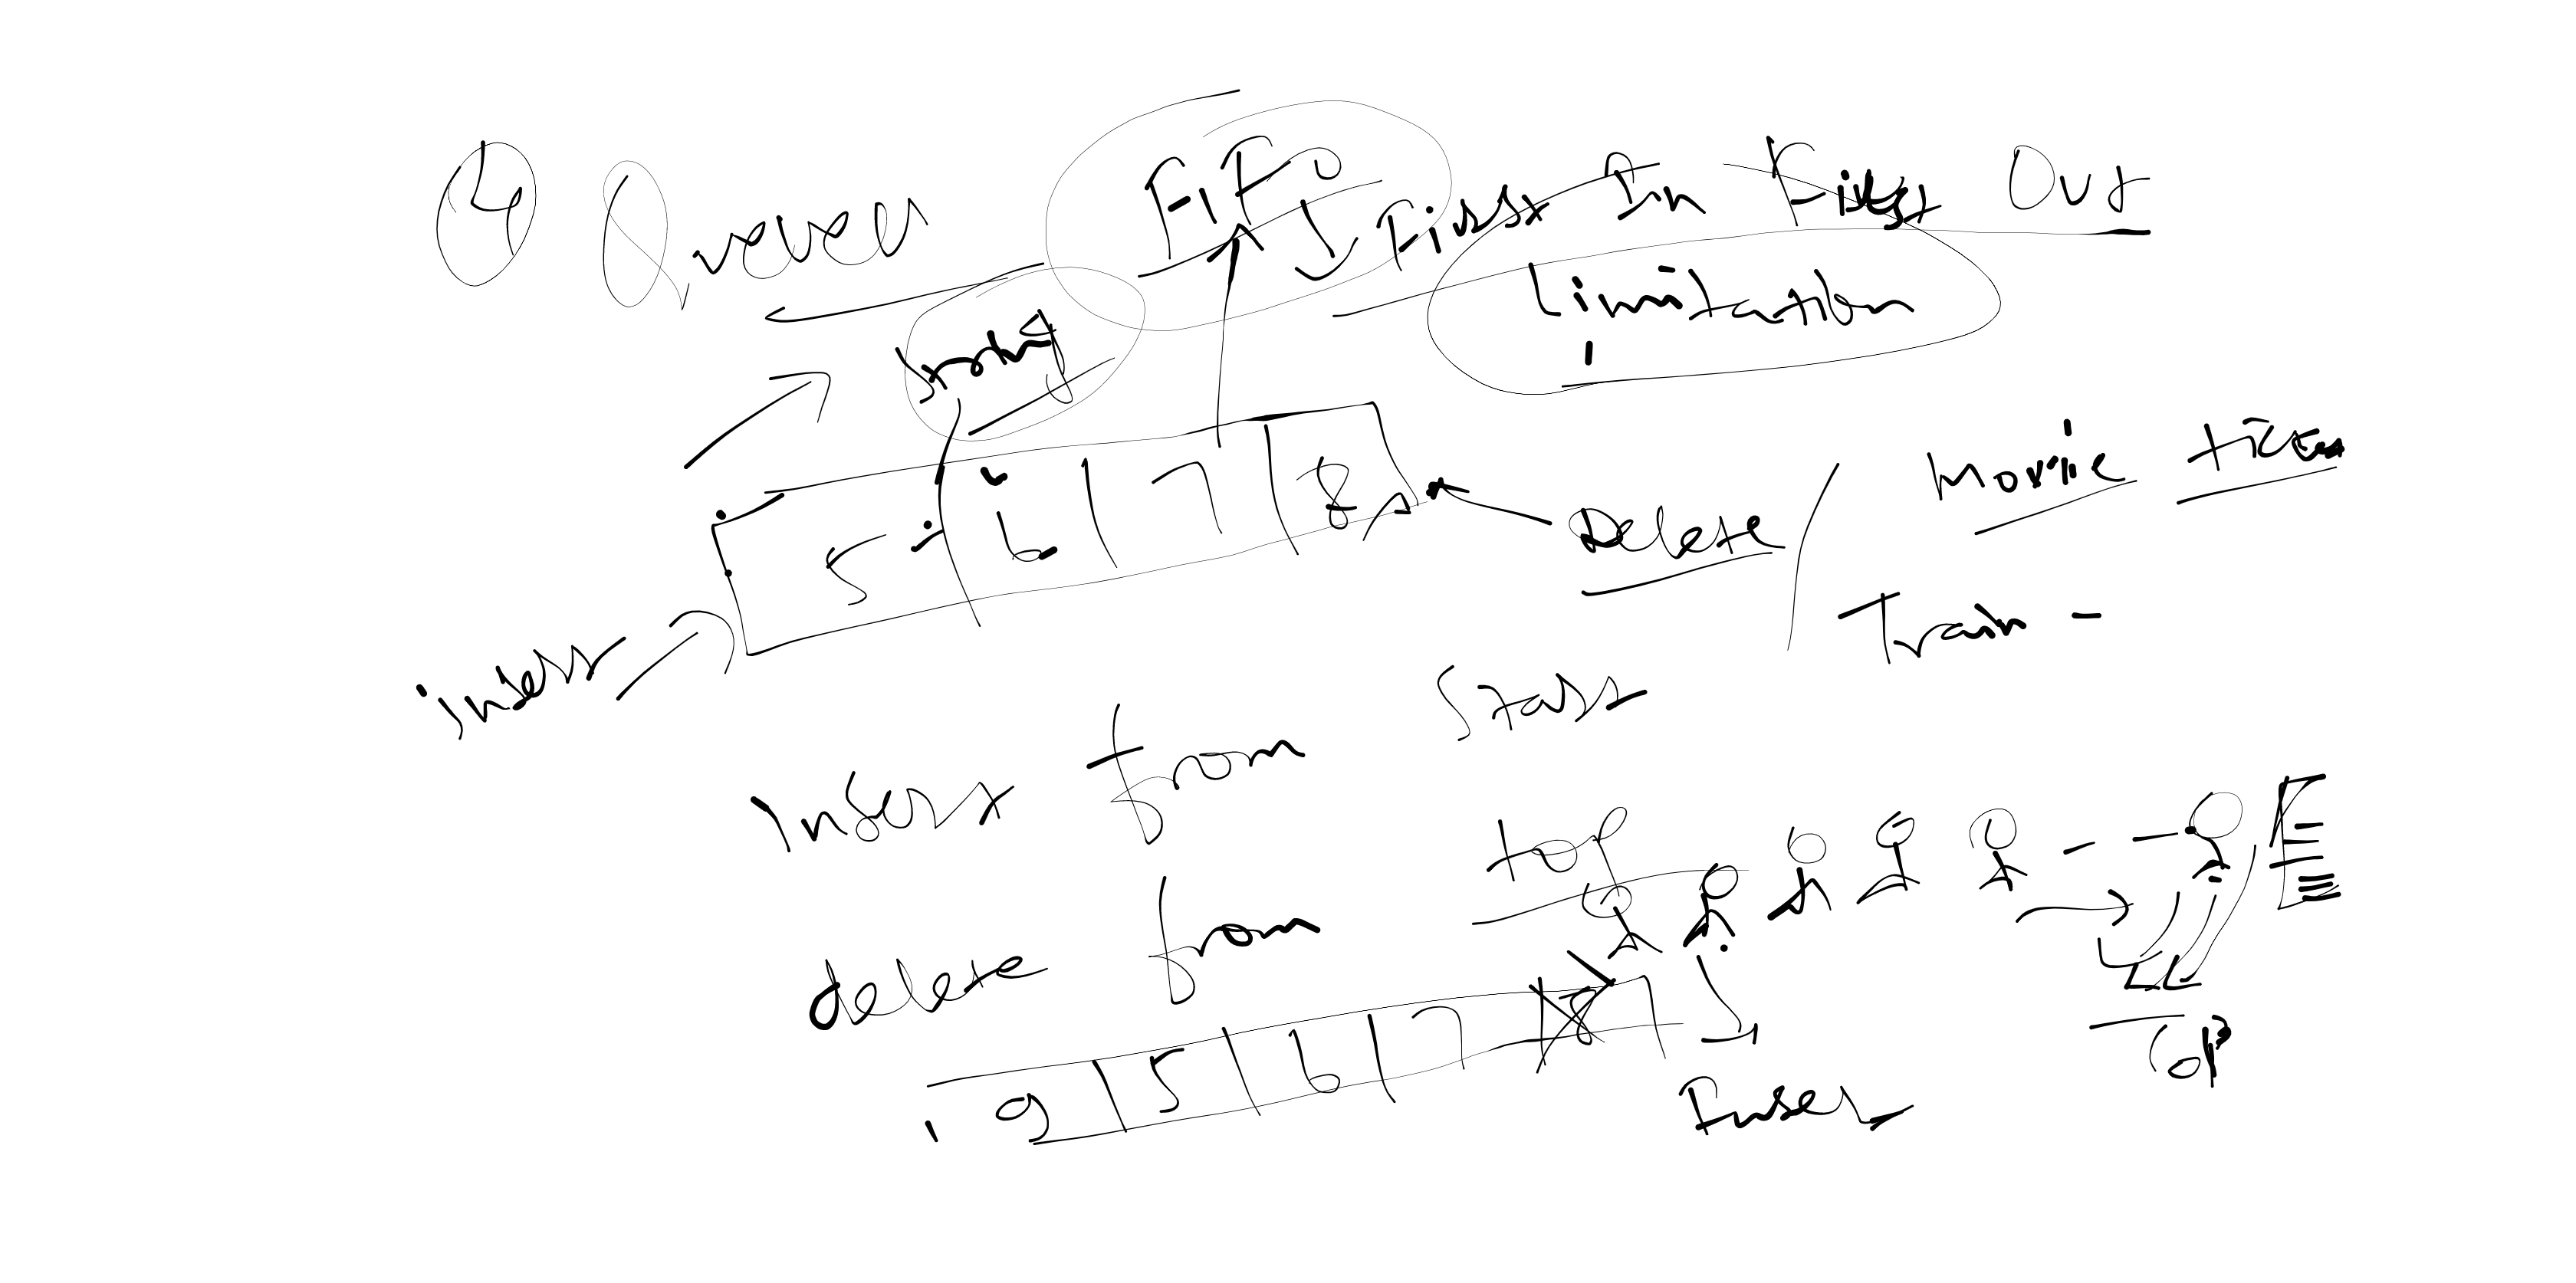 4 Queues FIFO First In First Out
Limitation
5 6 7 8
Delete
Movie ticket
Train -
insert
Insert from Start
delete from top
9 5 6 7 8
Insert
Top